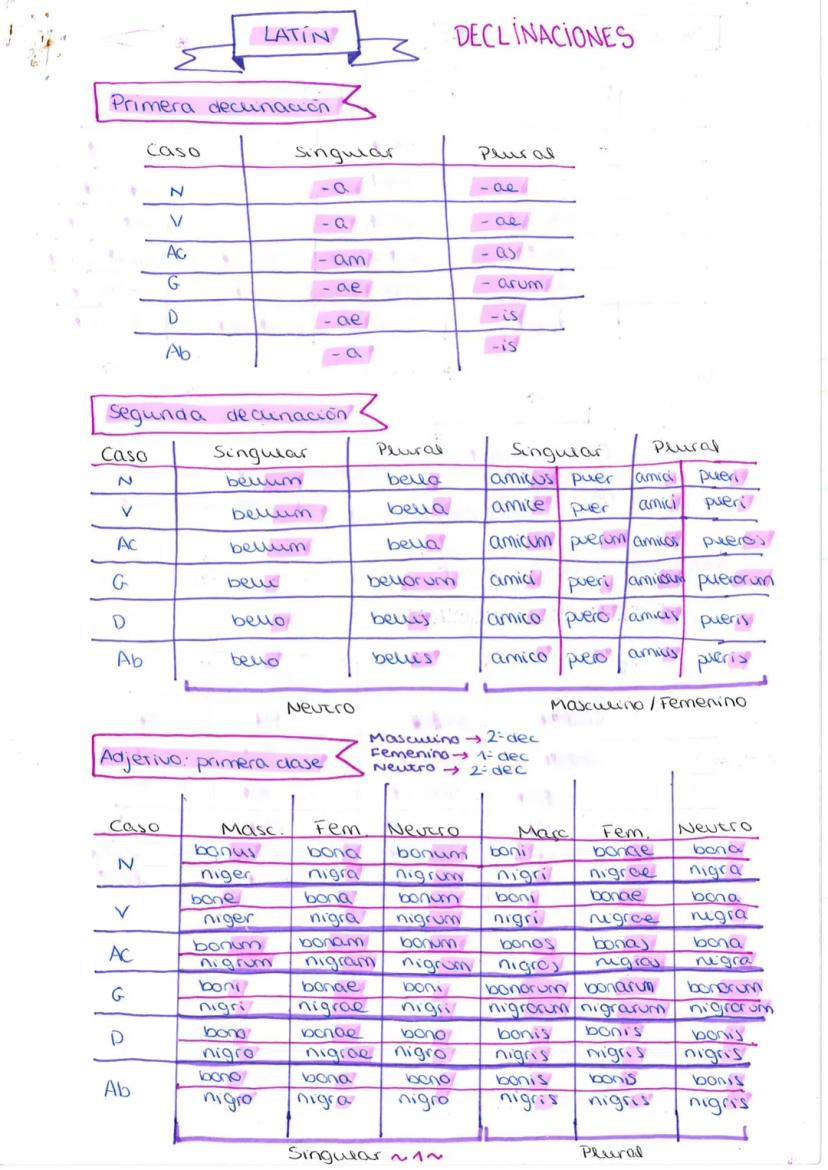 LATÍN DECLINACIONES
Primera declinación
Caso Singular Plural
N -a -ae
V -a -ae
AC -am -as
G -ae -arum
D -ae -is
Ab -a -is
Segunda declinación
Caso Singular Plural Singular Plural
N bellum bella amicus puer amici pueri
V bellum bella amice puer amici pueri
AC bellum bella amicum puerum amicos pueros
G belli bellorum amici pueri puerorum
D bello bellis amico puero amicis pueris
Ab bello bellis amico puero amicis pueris
Neutro Masculino / Femenino
Masculino → 2ª dec
Adjetivo: primera clase Femenino → 1ª dec
Neutro → 2ª dec
Caso Masc. Fem. Neutro Masc Fem. Neutro
bonus bona bonum boni bonae bona
N
niger nigra nigrum nigri nigrae nigra
bone bona bonum boni bonae bona
V
niger nigra nigrum nigri nigrae nigra
bonum bonam bonum bonos bonas bona
AC
nigrum nigram nigrum nigros nigras nigra
boni bonae boni bonorum bonarum bonorum
G
nigri nigrae nigri nigrorum nigrarum nigrorum
bono bonae bono bonis bonis bonis
D
nigro nigrae nigro nigris nigris nigris
bono bona bono bonis bonis bonis
Ab
nigro nigra nigro nigris nigris nigris
Singular ~1~ Plural